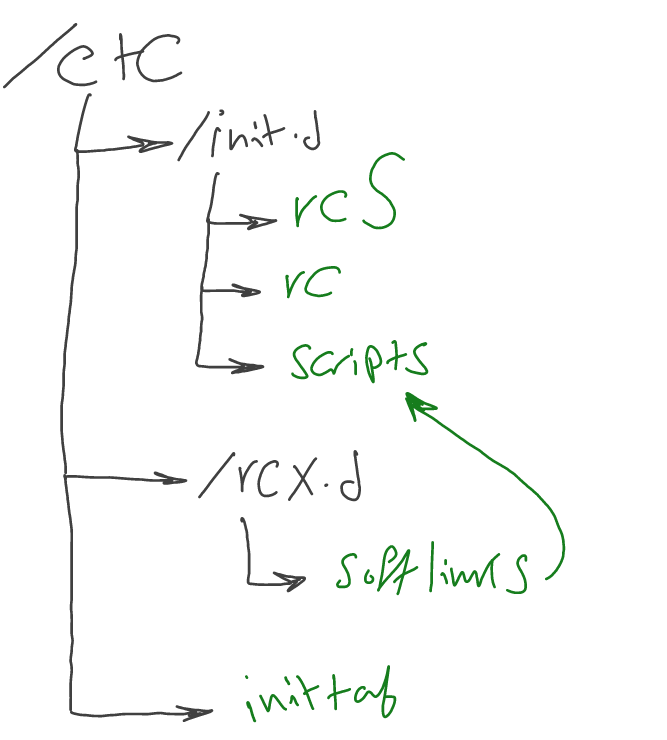 /etc
/init.d
rcS
rc
scripts
/rcX.d
softlinks
inittab